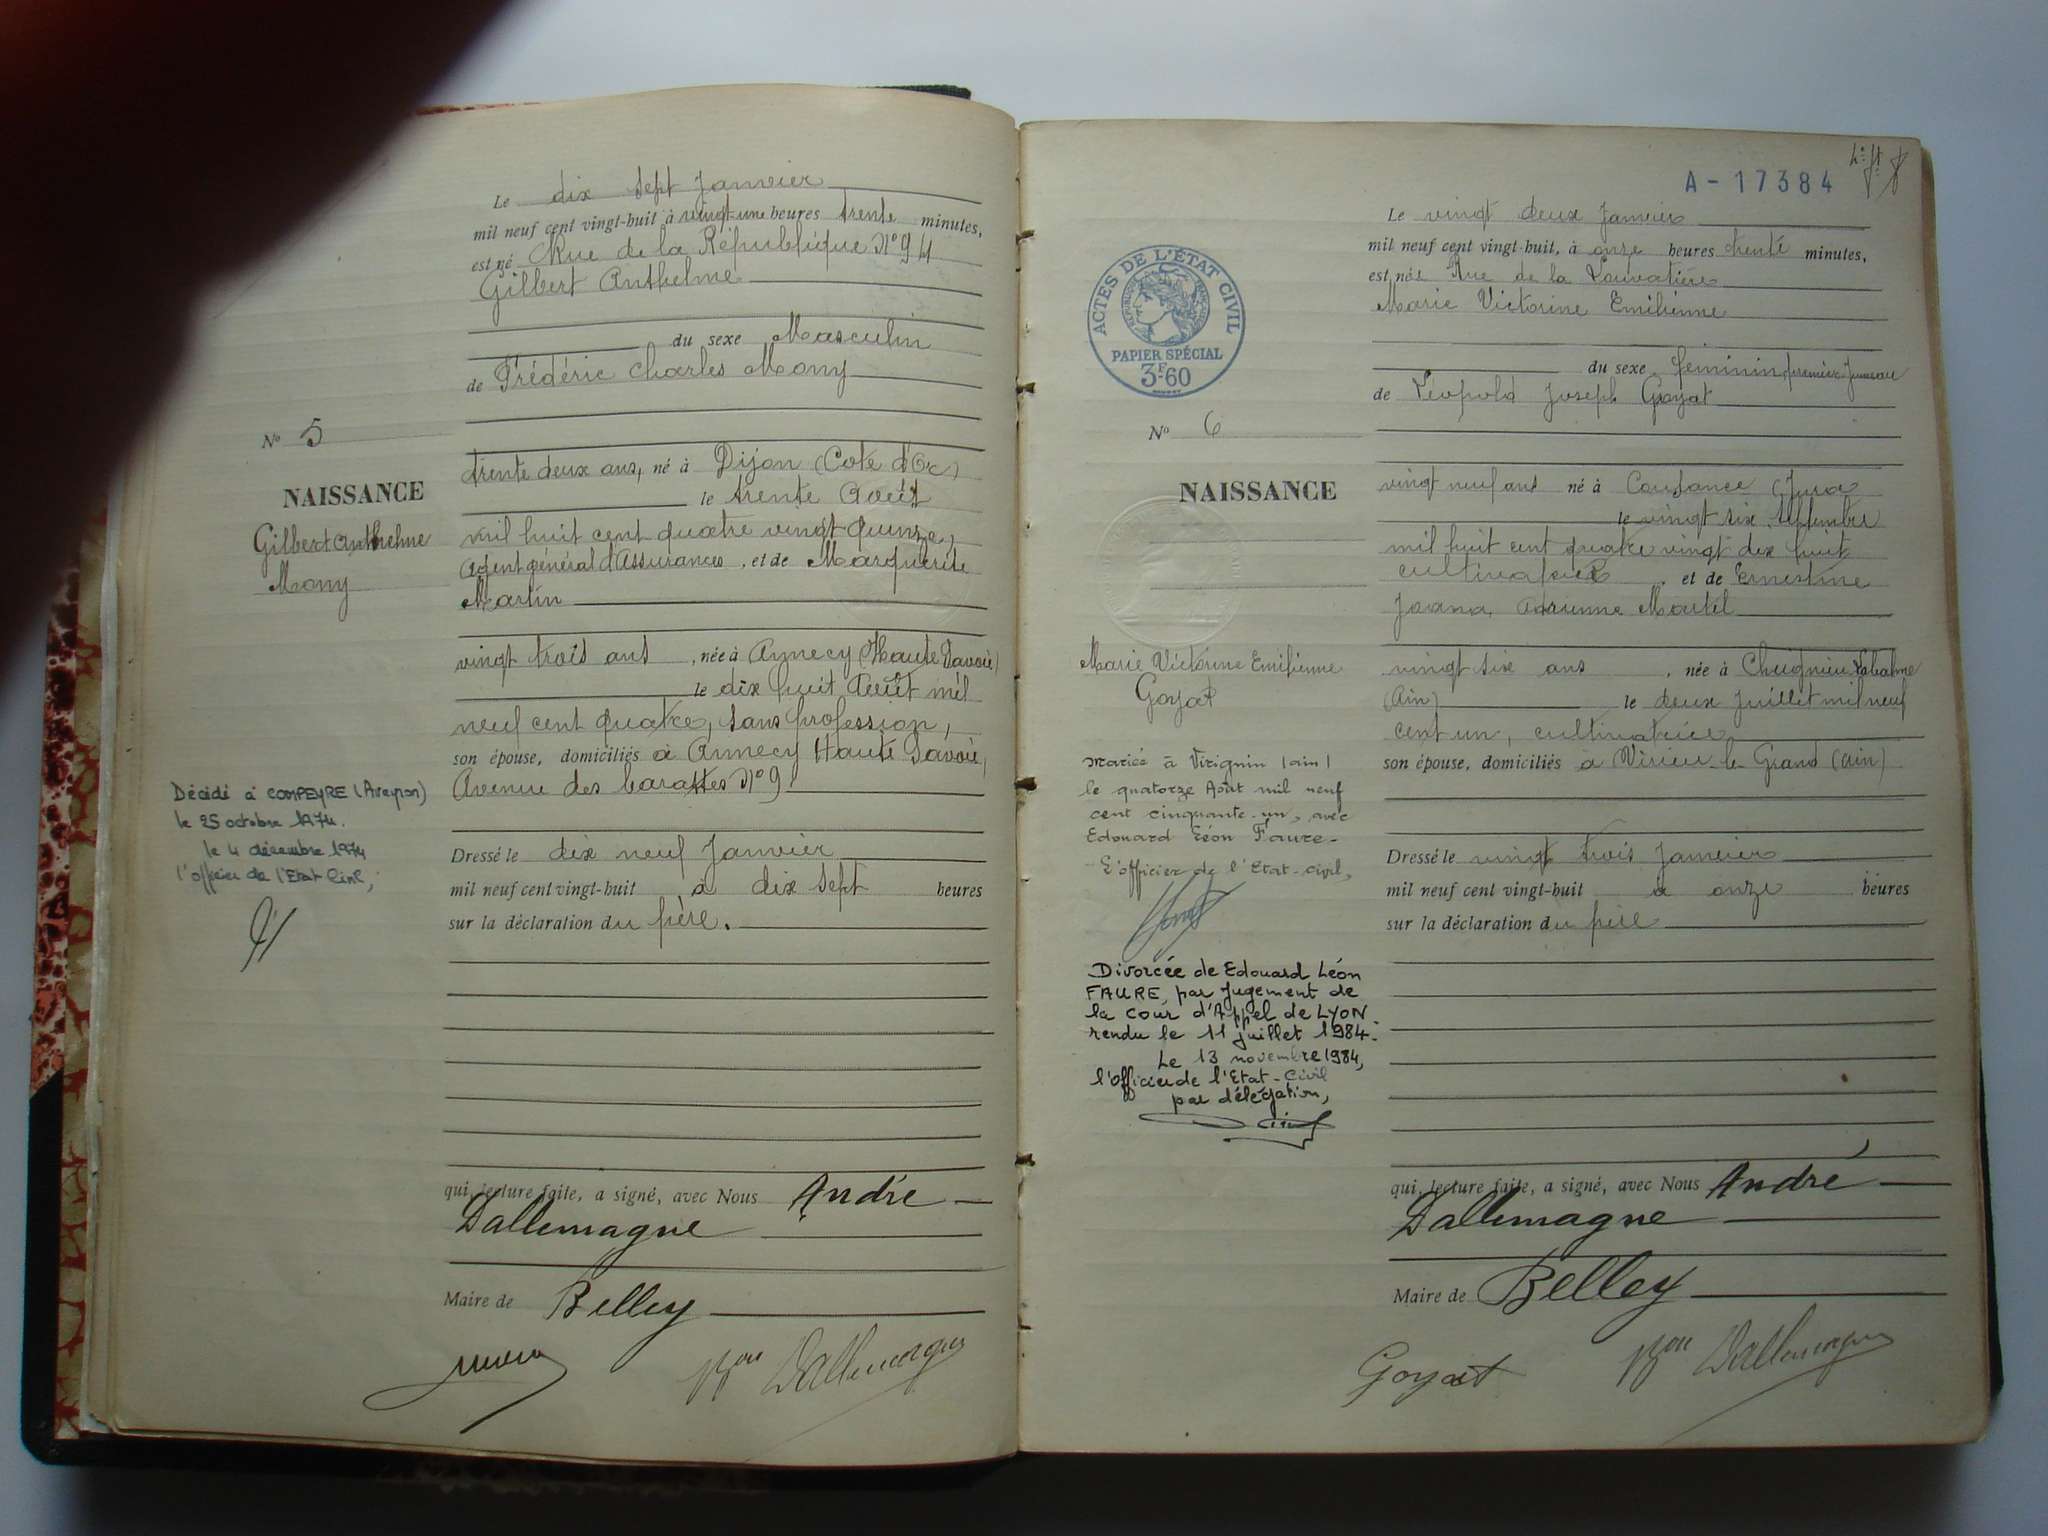 Le dix sept Janvier
mil neuf cent vingt-huit à vingt-une heures trente minutes,
est né Rue de la République N° 94
Gilbert Anthelme
du sexe Masculin
de Frédéric Charles Mony
N° 5
NAISSANCE
Gilbert Anthelme
Mony
trente deux ans, né à Dijon (Cote d'Or)
le trente Août
mil huit cent quatre vingt quinze,
Agent général d'Assurances, et de Marguerite
Martin
vingt trois ans, née à Annecy (Haute Savoie)
le dix huit Août mil
neuf cent quatre, sans profession,
son épouse, domiciliés à Annecy Haute Savoie,
Avenue des barattes N° 9
Décidé à COMPEYRE (Aveyron)
le 25 octobre 1974.
le 4 décembre 1974
l'officier de l'Etat Civil,
Dressé le dix neuf Janvier
mil neuf cent vingt-huit à dix sept heures
sur la déclaration du père.
qui, lecture faite, a signé, avec Nous André
Dallemagne
Maire de Belley
Bon Dallemagne
A-17384
Le vingt deux Janvier
mil neuf cent vingt-huit, à onze heures trente minutes,
est née Rue de la Louvatière
Marie Victorine Emilienne
du sexe féminin, premier jumeau
de Léopold Joseph Goyat
ACTES DE L'ÉTAT CIVIL
RÉPUBLIQUE FRANÇAISE
PAPIER SPÉCIAL
3F60
N° 6
NAISSANCE
Marie Victorine Emilienne
Goyat
vingt neuf ans né à Cousance (Jura
le vingt six septembre
mil huit cent quatre vingt dix huit
cultivateur, et de Ernestine
Joana Adrienne Martel
vingt six ans, née à Cheignieu Labalme
(Ain) le deux Juillet mil neuf
cent un, cultivatrice
son épouse, domiciliés à Virieu-le-Grand (Ain)
mariée à Virignin (Ain)
le quatorze Août mil neuf
cent cinquante-un, avec
Edouard Léon Faure-
L'officier de l'Etat-civil,
Divorcée de Edouard Léon
FAURE, par Jugement de
la cour d'Appel de LYON
rendu le 11 juillet 1984.
Le 13 novembre 1984,
l'officier de l'Etat-Civil
par délégation,
Dressé le vingt trois Janvier
mil neuf cent vingt-huit à onze heures
sur la déclaration du père
qui, lecture faite, a signé, avec Nous André
Dallemagne
Maire de Belley
Goyat
Bon Dallemagne